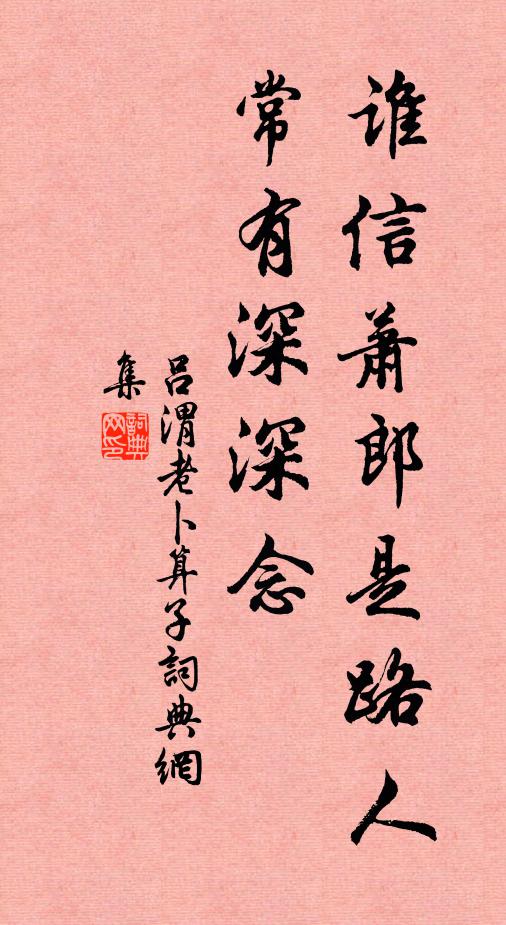 谁信萧郎是路人
常有深深念
吕渭老卜算子詞典網
集
詞典
网印